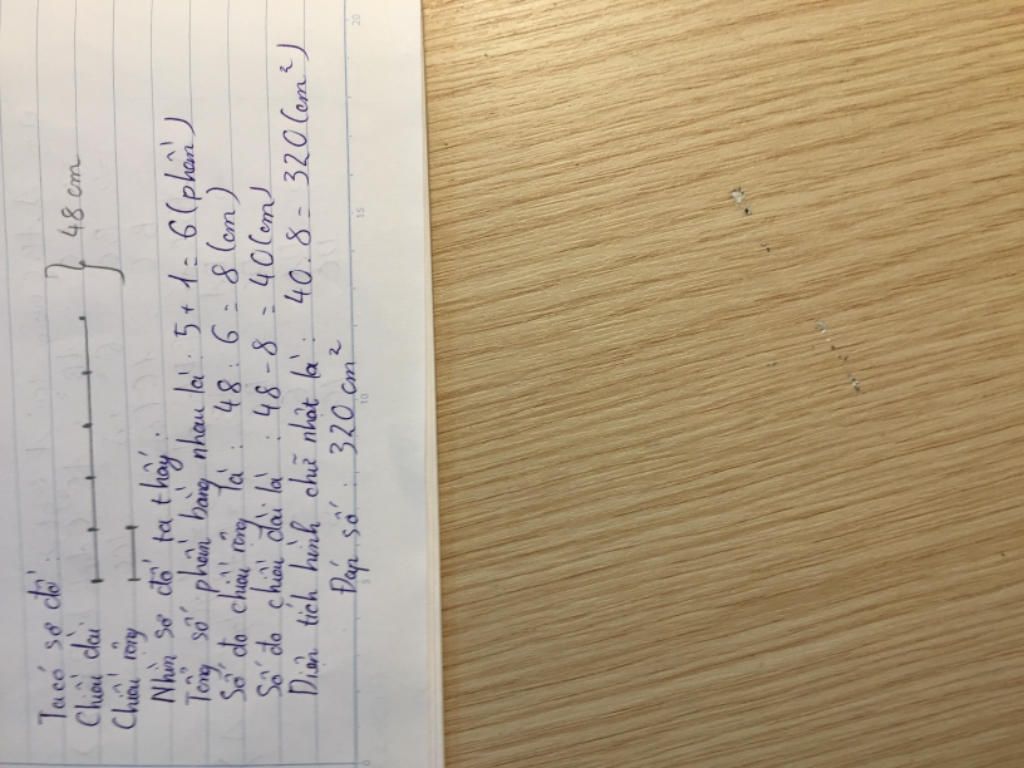 Ta có sơ đồ:
Chiều dài
48 cm
Chiều rộng
Nhìn sơ đồ ta thấy:
Tổng số phần bằng nhau là: 5 + 1 = 6 (phần)
Số đo chiều rộng là: 48 : 6 = 8 (cm)
Số đo chiều dài là: 48 - 8 = 40 (cm)
Diện tích hình chữ nhật là: 40 . 8 = 320 (cm²)
Đáp số: 320 cm²
5
10
15
20